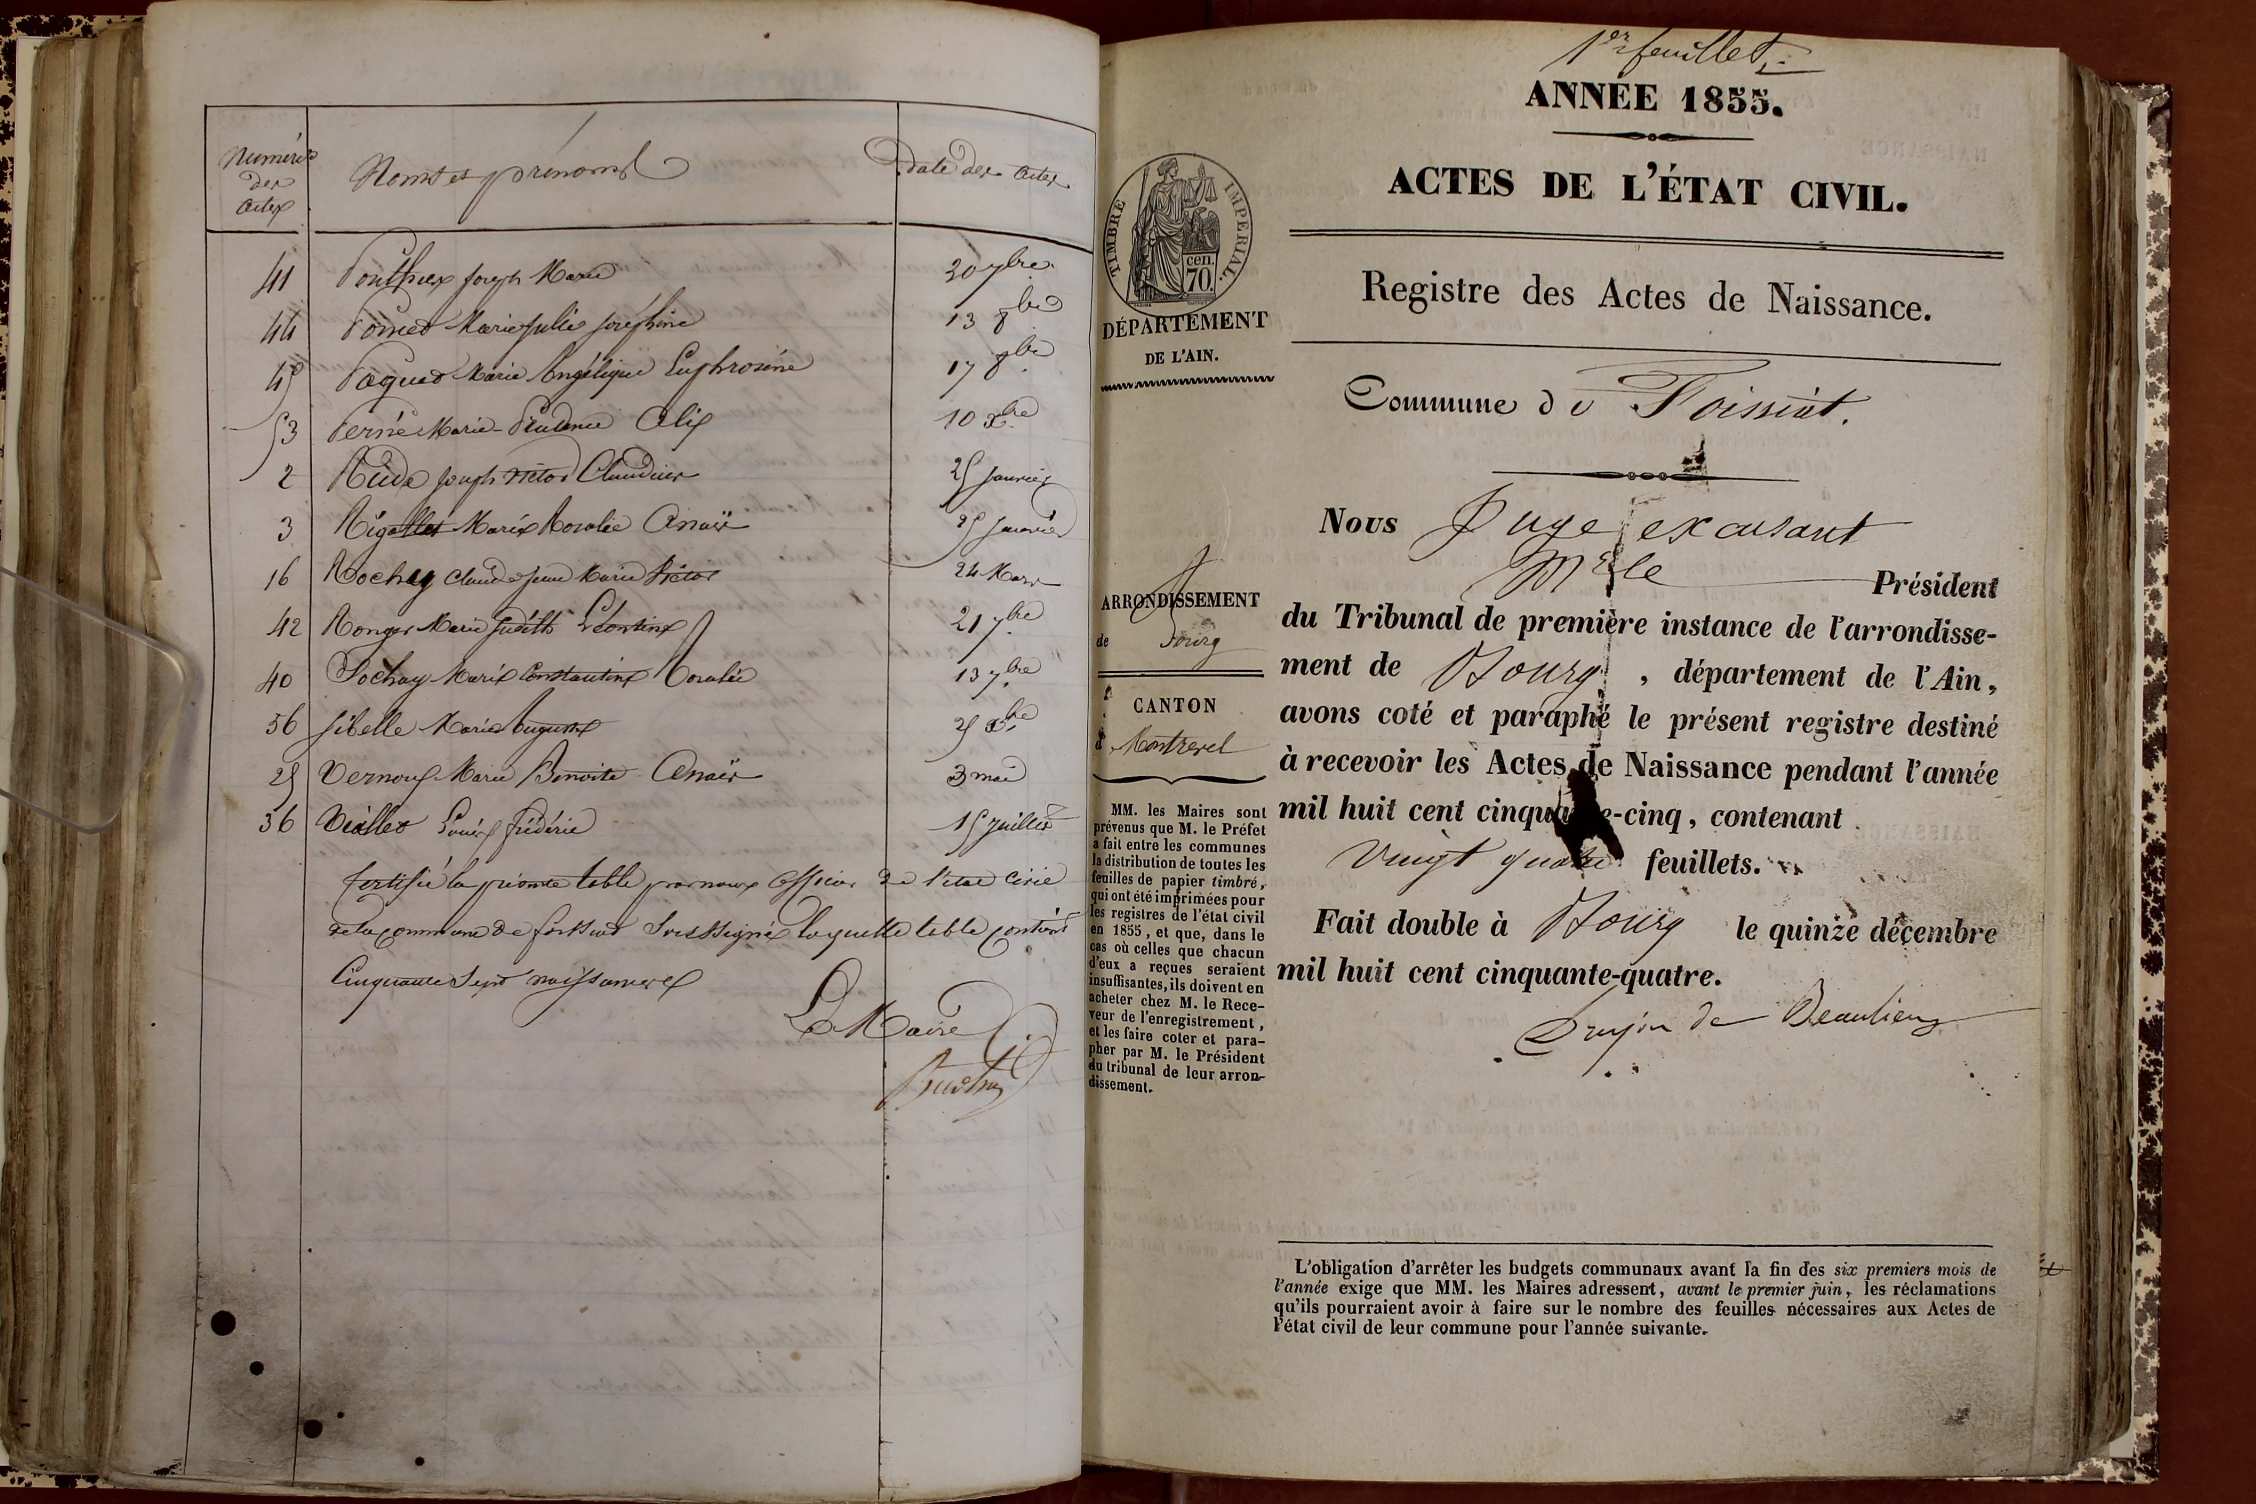 Numéros
des
actes
Noms et prénoms
date des actes
41 Ponthux Joseph Marie 20 7bre
44 Marie Julie Joséphine 13 8bre
45 Marie Angélique Euphrosine 17 8bre
53 Perné Marie-Prudence Alix 10 Xbre
2 Joseph Victor Claudius 25 Janvier
3 Rigollet Marie Rosalie Anaïs 25 Janvier
16 Rochay Claude Jean Marie Victor 24 Mars
42 Ronger Marie Judith Léontine 21 7bre
40 Sochay Marie Constantine Rosalie 13 7bre
56 Sibelle Marie Auguste 25 Xbre
25 Vernoux Marie Benoite Anaïs 3 mai
36 Viallet Louis Frédéric 15 Juillet
Certifié la présente table par nous officier de l'état civil
de la commune de foissiat soussigné laquelle table contient
Cinquante Sept naissances
Le Maire
1er feuillet
ANNÉE 1855.
ACTES DE L'ÉTAT CIVIL.
TIMBRE IMPERIAL.
cen.
70.
Registre des Actes de Naissance.
DÉPARTEMENT
DE L'AIN.
Commune de Foissiat.
Nous Juge excusant
Mr le Président
ARRONDISSEMENT
de Bourg
du Tribunal de première instance de l'arrondisse-
ment de Bourg, département de l'Ain,
CANTON
d Montrevel
avons coté et paraphé le présent registre destiné
à recevoir les Actes de Naissance pendant l'année
mil huit cent cinquante-cinq, contenant
Vingt quatre feuillets.
Fait double à Bourg le quinze décembre
mil huit cent cinquante-quatre.
Drujon de Beaulieu
MM. les Maires sont
prévenus que M. le Préfet
a fait entre les communes
la distribution de toutes les
feuilles de papier timbré,
qui ont été imprimées pour
les registres de l'état civil
en 1855, et que, dans le
cas où celles que chacun
d'eux a reçues seraient
insuffisantes, ils doivent en
acheter chez M. le Rece-
veur de l'enregistrement,
et les faire coter et para-
pher par M. le Président
du tribunal de leur arron-
dissement.
L'obligation d'arrêter les budgets communaux avant la fin des six premiers mois de
l'année exige que MM. les Maires adressent, avant le premier juin, les réclamations
qu'ils pourraient avoir à faire sur le nombre des feuilles nécessaires aux Actes de
l'état civil de leur commune pour l'année suivante.